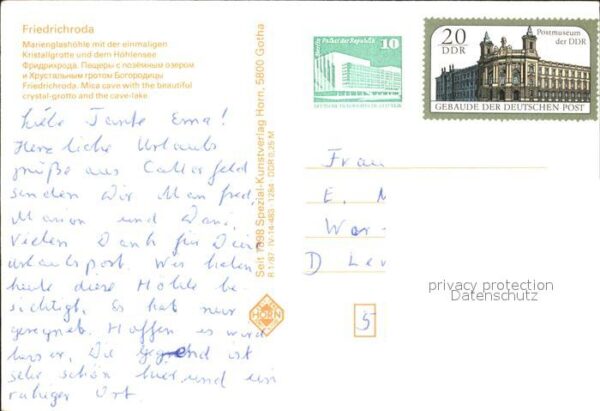 Friedrichroda
Marienglashöhle mit der einmaligen
Kristallgrotte und dem Höhlensee
Фридрихрода. Пещеры с поземным озером
и Хрустальным гротом Богородицы
Friedrichroda. Mica cave with the beautiful
crystal-grotto and the cave-lake
Liebe Tante Erna!
Herzliche Urlaubs
grüße aus
senden Wir Manfred,
Marion und Dani.
Vielen Dank für Deine
Urlaubspost. Wir haben
heute diese Höhle be-
sichtigt. Es hat nur
geregnet. Hoffen es wird
besser. Die Gegend ist
sehr schön hier und ein
ruhiger Ort.
Seit 1898 Spezial-Kunstverlag Horn, 5800 Gotha
R 1/87 IV-14-483 1284 DDR 0,25 M
HORN
Palast der Republik
10
DEUTSCHE DEMOKRATISCHE REPUBLIK
20
DDR
Postmuseum
der DDR
GEBÄUDE DER DEUTSCHEN POST
Frau
E. M
War-
D Lev
5
privacy protection
Datenschutz